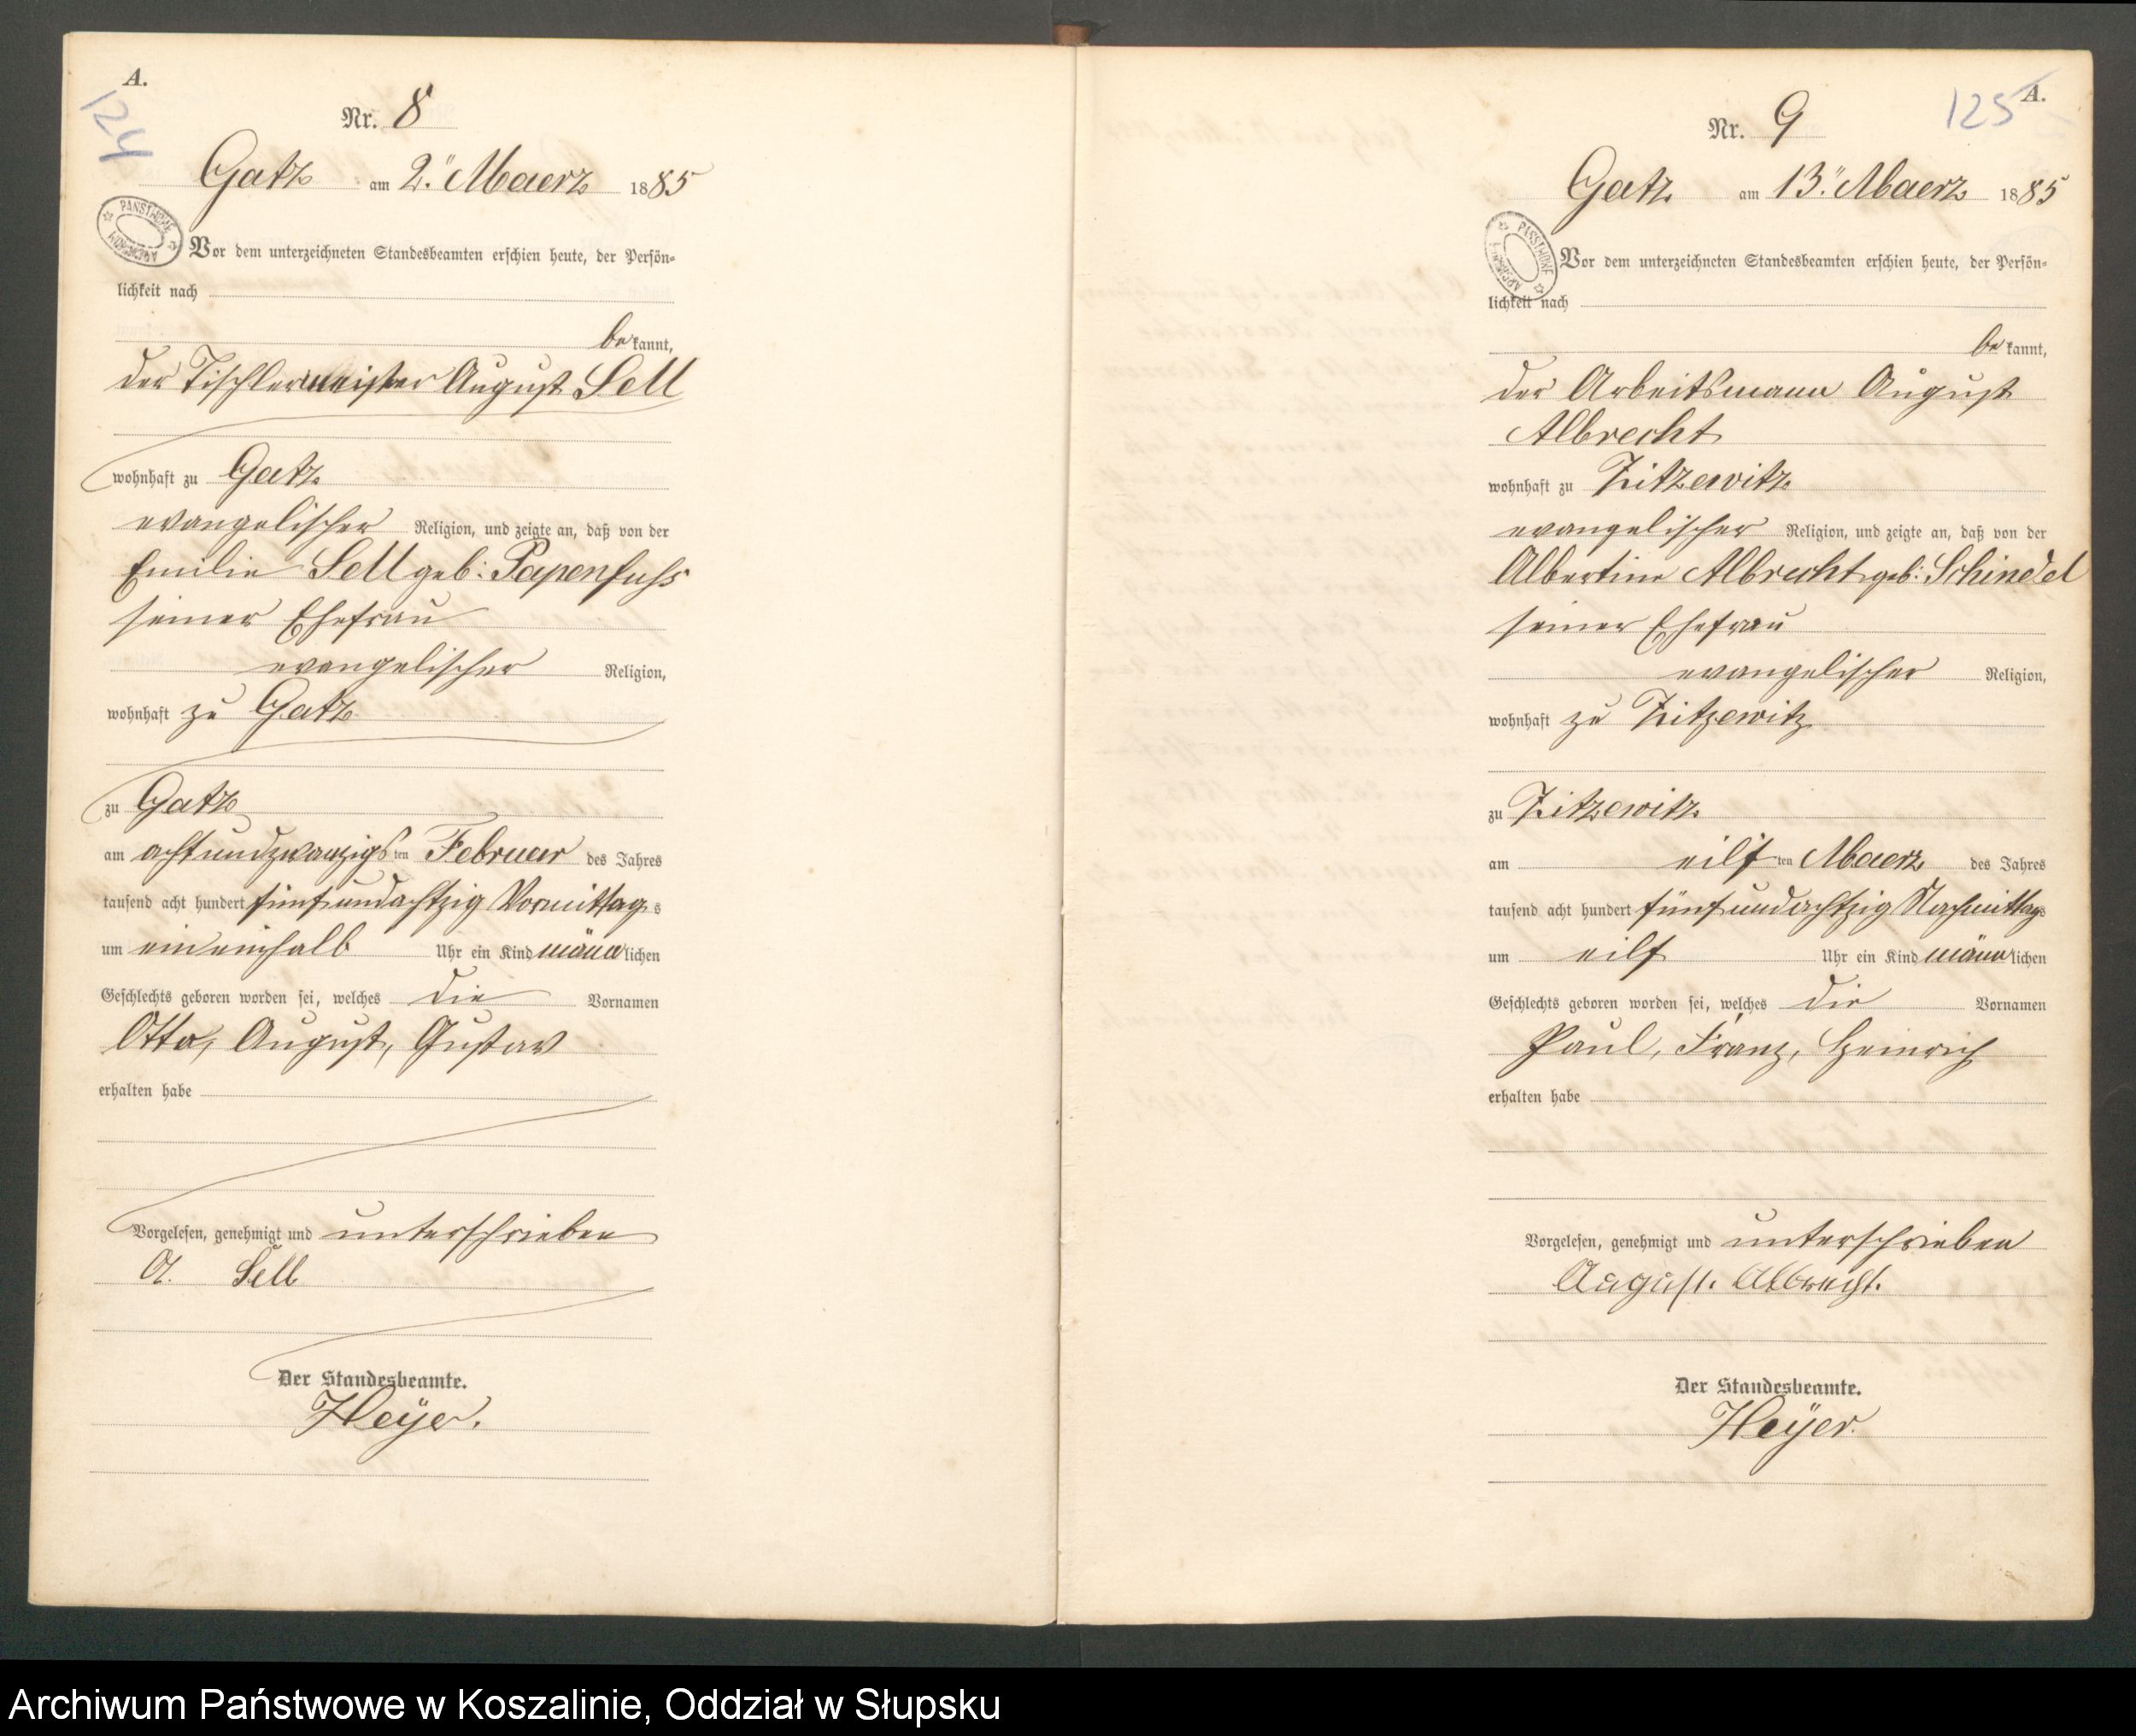 A.
124
Nr. 8
Gatz am 2. Maerz 1885
Vor dem unterzeichneten Standesbeamten erschien heute, der Persön=
lichkeit nach
bekannt,
der Tischlermeister August Sell
wohnhaft zu Gatz
evangelischer Religion, und zeigte an, daß von der
Emilie Sell geb: Papenfuhs
seiner Ehefrau
evangelischer Religion,
wohnhaft zu Gatz
zu Gatz
am achtundzwanzigsten Februar des Jahres
tausend acht hundert fünfundachtzig Vormittags
um eineinhalb Uhr ein Kind männlichen
Geschlechts geboren worden sei, welches die Vornamen
Otto, August, Gustav
erhalten habe
Vorgelesen, genehmigt und unterschrieben
A. Sell
Der Standesbeamte.
Heÿer.
A.
125
Nr. 9
Gatz am 13. Maerz 1885
Vor dem unterzeichneten Standesbeamten erschien heute, der Persön=
lichkeit nach
bekannt,
der Arbeitsmann August
Albrecht
wohnhaft zu Zitzewitz
evangelischer Religion, und zeigte an, daß von der
Albertine Albrecht geb: Schindel
seiner Ehefrau
evangelischer Religion,
wohnhaft zu Zitzewitz
zu Zitzewitz
am eilften Maerz des Jahres
tausend acht hundert fünfundachtzig Nachmittags
um eilf Uhr ein Kind männlichen
Geschlechts geboren worden sei, welches die Vornamen
Paul, Franz, Heinrich
erhalten habe
Vorgelesen, genehmigt und unterschrieben
August. Albrecht.
Der Standesbeamte.
Heÿer.
Archiwum Państwowe w Koszalinie, Oddział w Słupsku